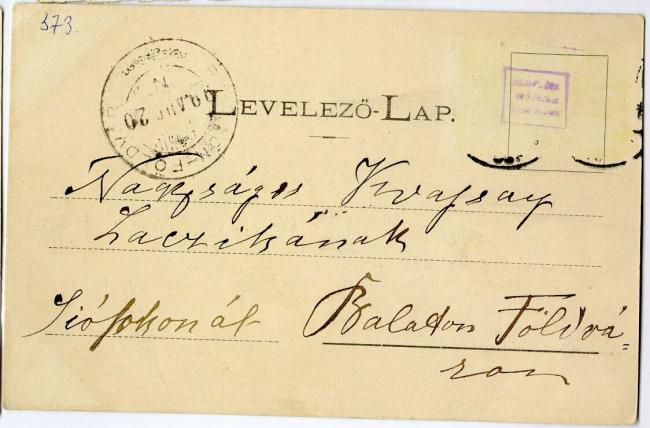 373.
LEVELEZŐ-LAP.
Nagyságos Kvassay
Laczikának
Siófokon át Balaton Földvá=
ron